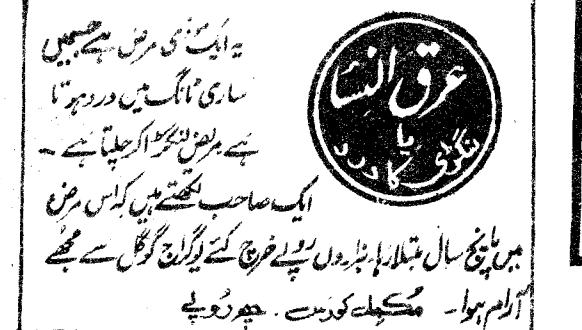 عرق النسا
یا
لنگڑی کا درد
یہ ایک نئی مرض ہے جسمیں
ساری ٹانگ میں درد ہوتا
ہے مریض لنگڑا کر چلتا ہے -
ایک صاحب لکھتے ہیں کہ اس مرض
میں پانچ سال مبتلا رہا، ہزاروں روپے خرچ کئے یوگراج گوگل سے مجھے
آرام ہوا - مکمل کورس . چھ روپے